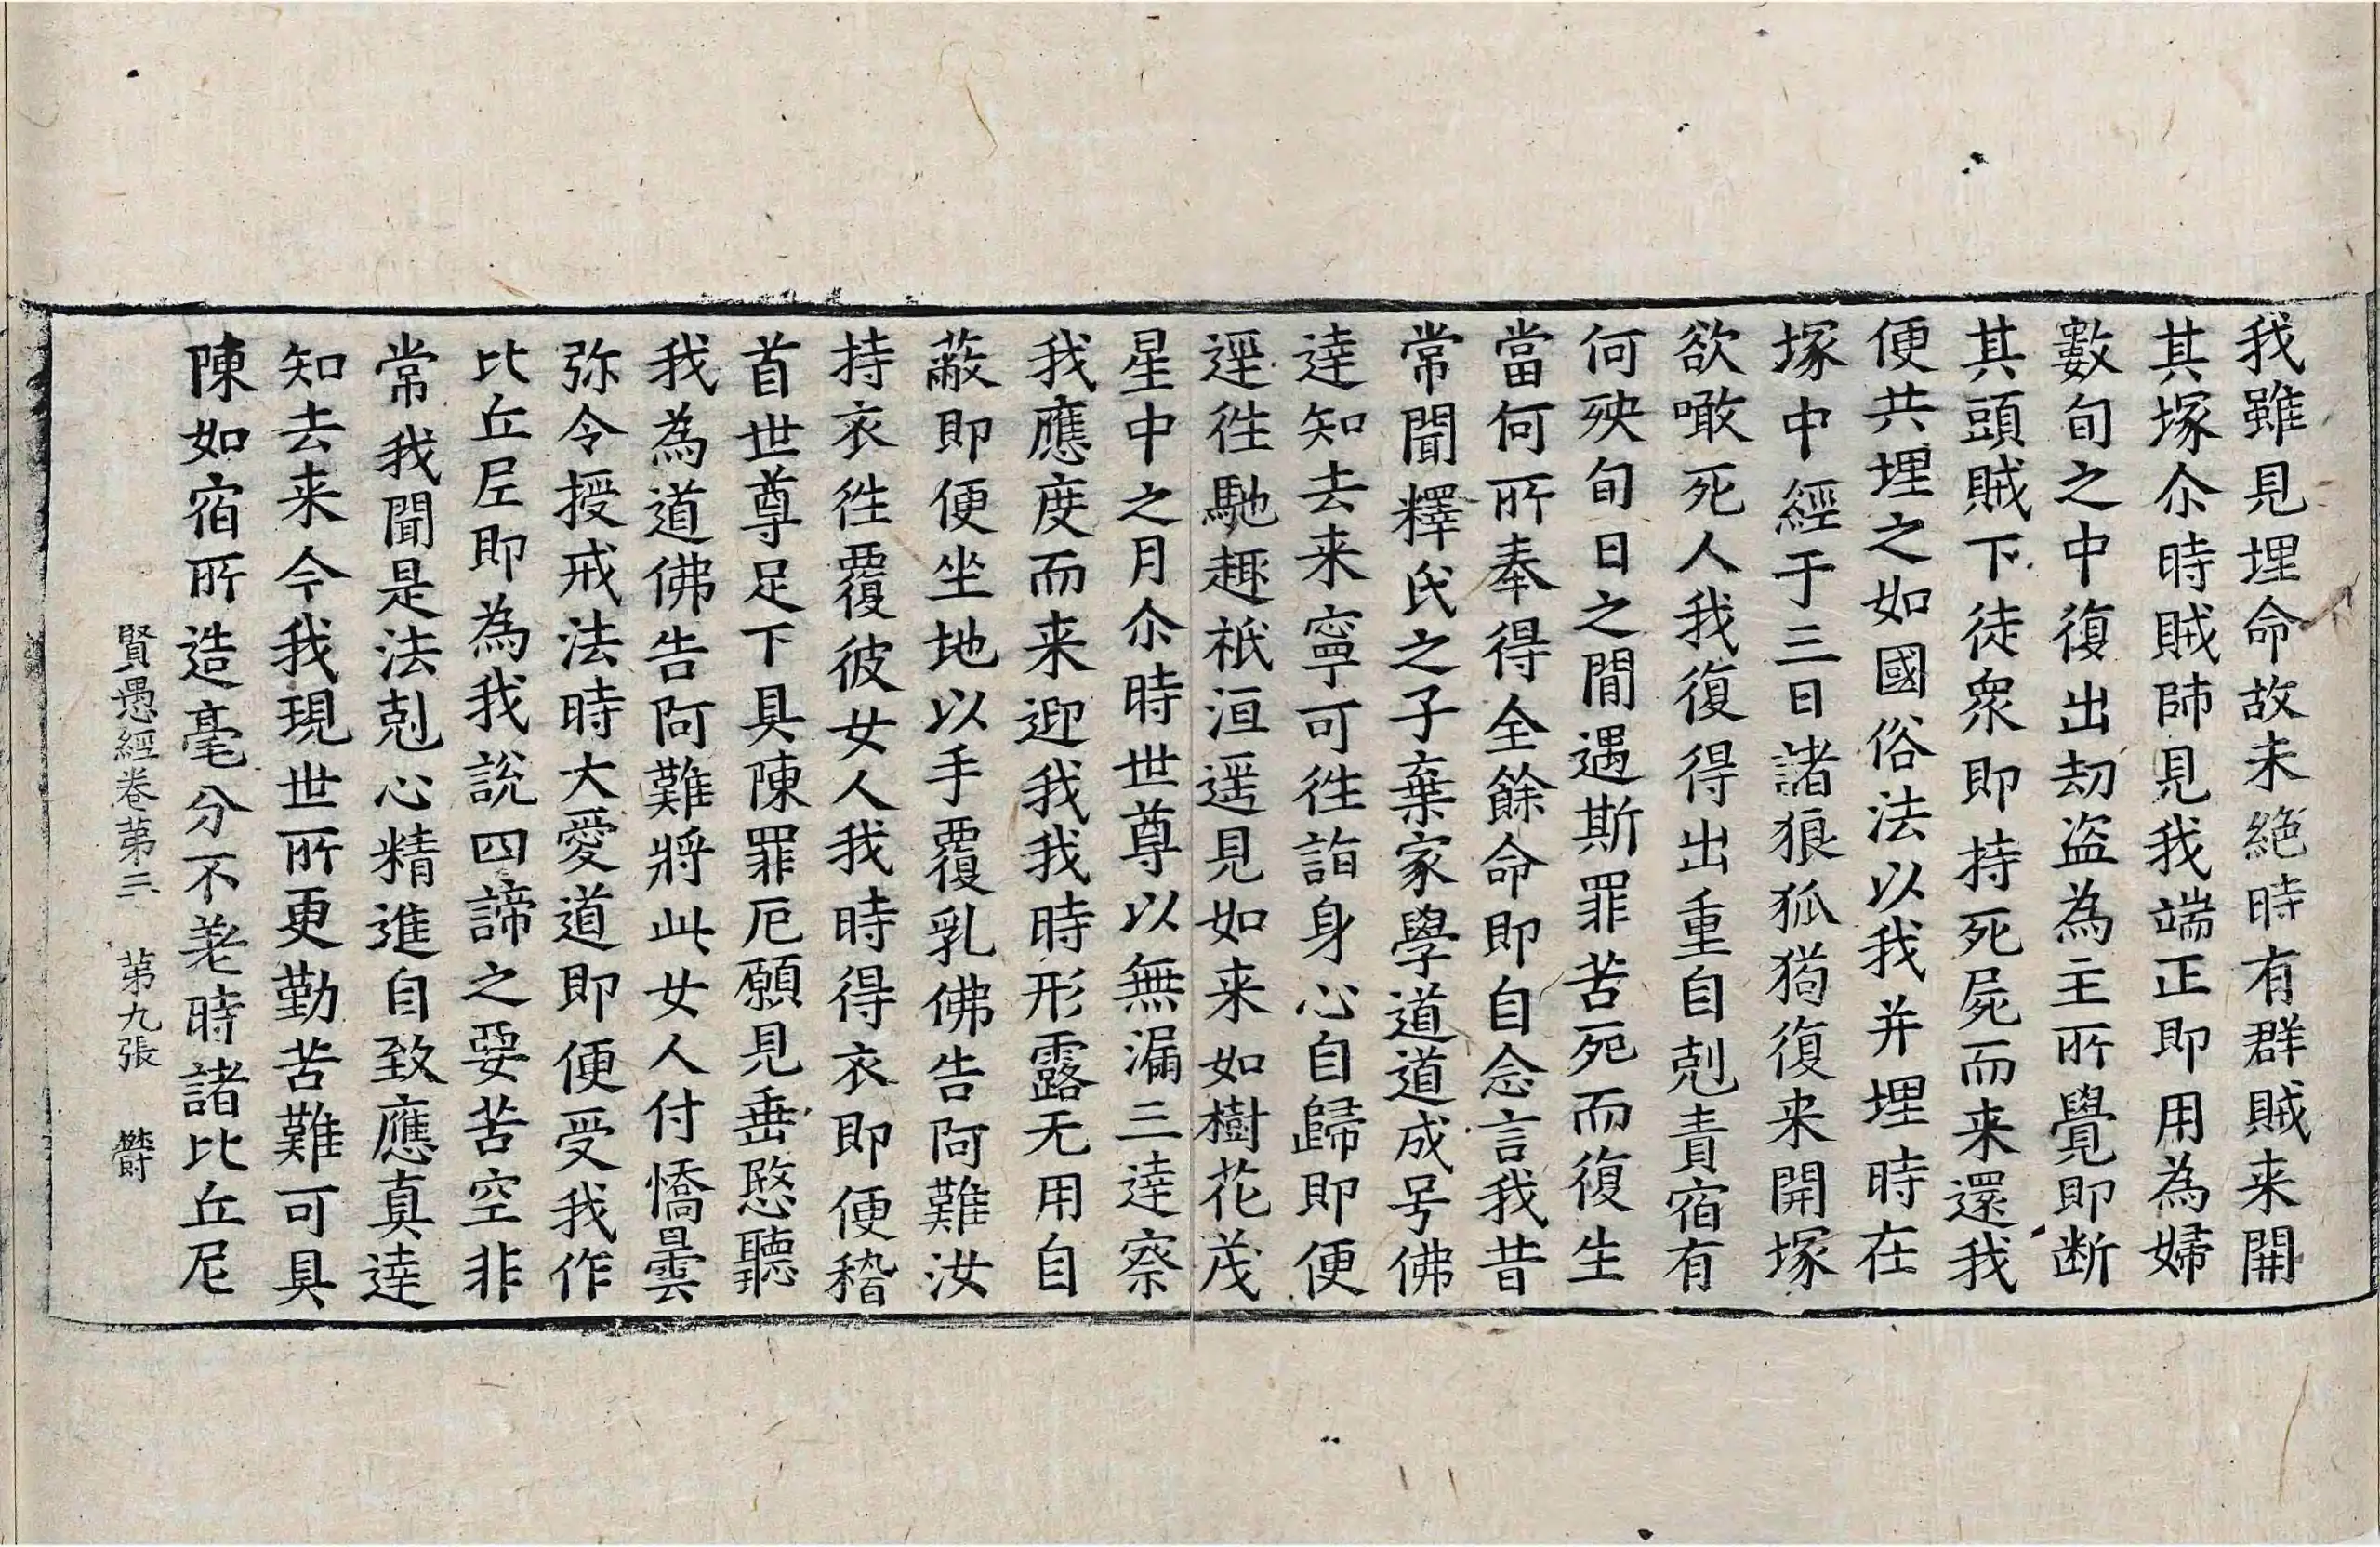 我雖見埋命故未絶時有群賊来開
其塚尒時賊帥見我端正即用為婦
數旬之中復出劫盗為主所覺即断
其頭賊下徒衆即持死屍而来還我
便共埋之如國俗法以我并埋時在
塚中經于三日諸狼狐狗復来開塚
欲噉死人我復得出重自剋責宿有
何殃旬日之間遇斯罪苦死而復生
當何所奉得全餘命即自念言我昔
常聞釋氏之子棄家學道道成号佛
達知去来寧可徃詣身心自歸即便
逕徃馳趣祇洹遥見如来如樹花茂
星中之月尒時世尊以無漏三達察
我應度而来迎我我時形露无用自
蔽即便坐地以手覆乳佛告阿難汝
持衣徃覆彼女人我時得衣即便稽
首世尊足下具陳罪厄願見垂愍聽
我為道佛告阿難將此女人付憍曇
弥令授戒法時大愛道即便受我作
比丘尼即為我說四諦之要苦空非
常我聞是法剋心精進自致應真達
知去来今我現世所更勤苦難可具
陳如宿所造毫分不差時諸比丘尼
賢愚經卷第三 第九張 欝